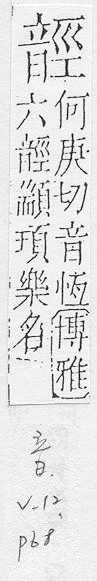 䪫
何庚切音恆博雅
六䪫顓頊樂名
音
V-12,
p68